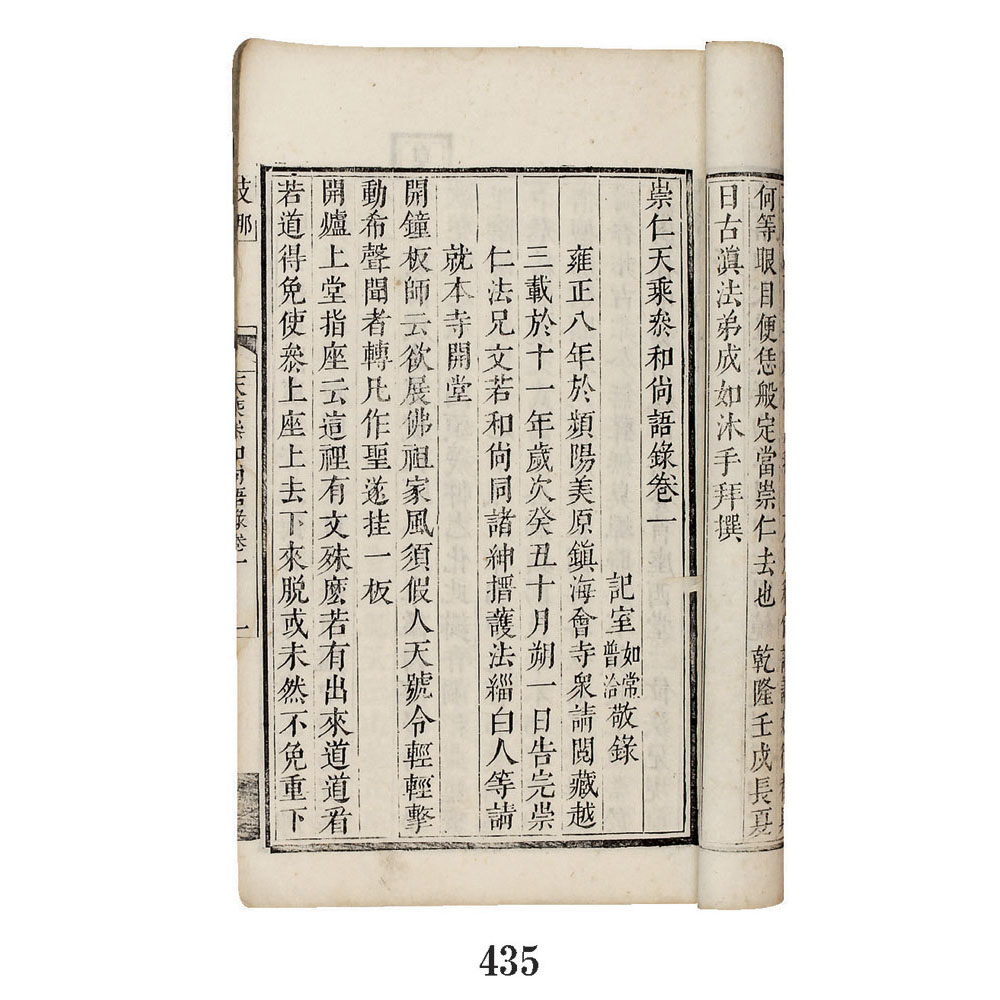 何等眼目便恁般定當崇仁去也　乾隆壬戌長夏
日古滇法弟成如沐手拜撰
崇仁天乘叅和尙語錄卷一
記室如常普洽敬錄
雍正八年於頻陽美原鎮海會寺衆請閱藏越
三載於十一年歲次癸丑十月朔一日告完崇
仁法兄文若和尙同諸紳搢護法緇白人等請
就本寺開堂
開鐘板師云欲展佛祖家風須假人天號令輕輕擊
動希聲聞者轉凡作聖遂挂一板
開爐上堂指座云這裡有文殊麽若有出來道道看
若道得免使叅上座上去下來脫或未然不免重下
支那
天乘叅和尙語錄卷一
一
435